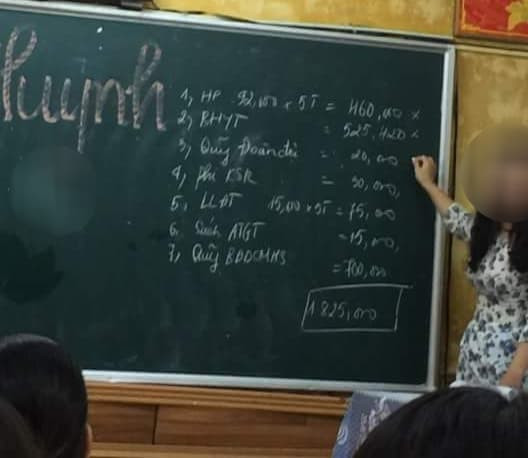 Huynh
1, HP 92,000 x 5T = 460,000 x
2, BHYT = 525,420 x
3, Quỹ Đoàn đội = 20,000
4, Phí KSK = 30,000,
5, LLĐT 15,000 x 5T = 75,000
6, Sách ATGT = 15,000,
7, Quỹ BĐDCMHS = 700,000
1825,000